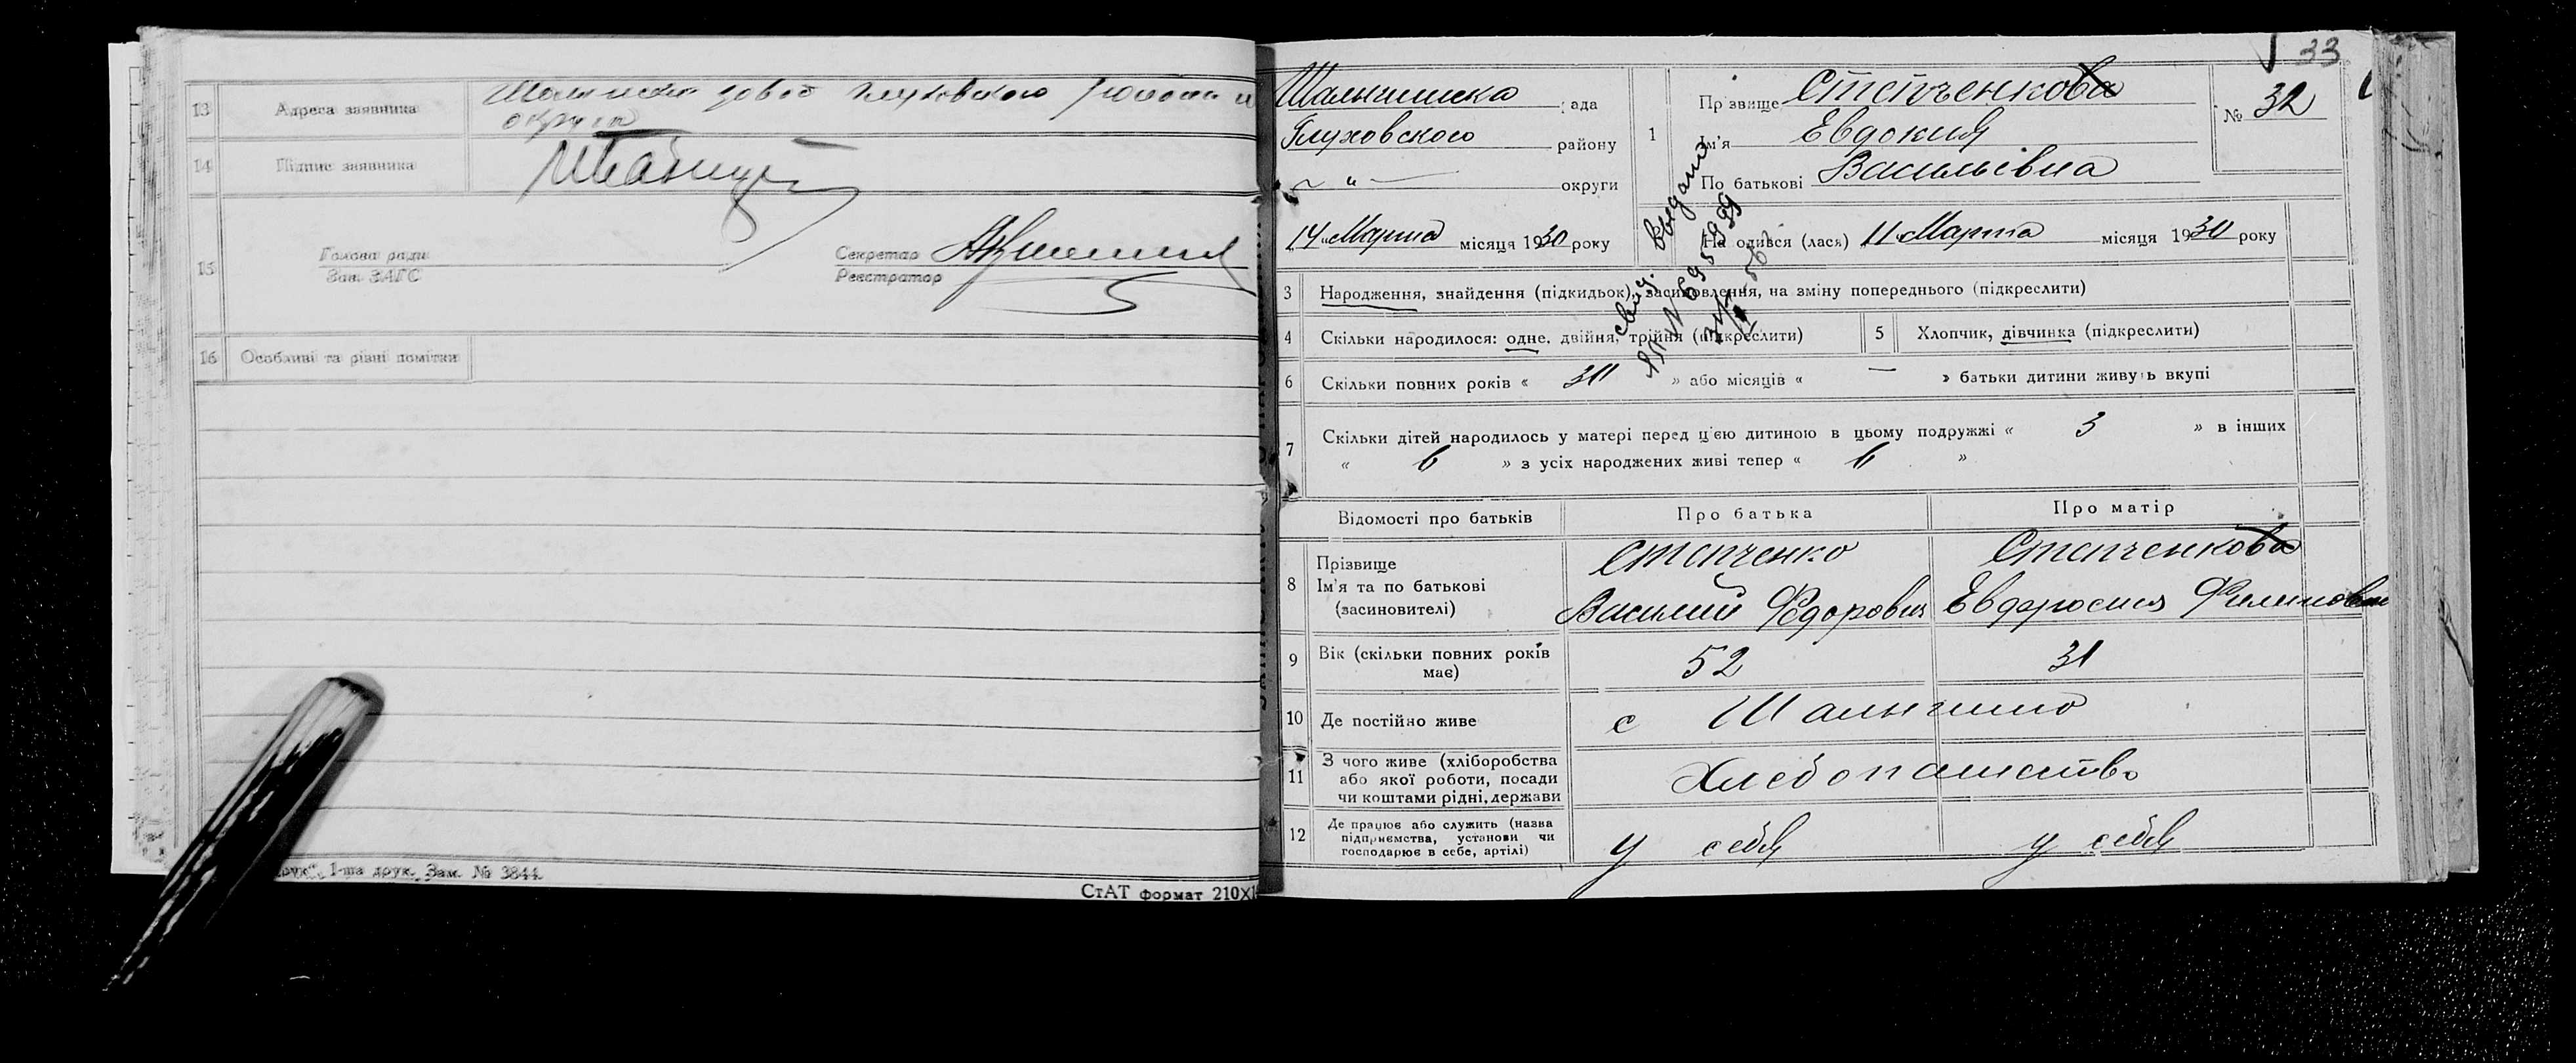 13 Адреса заявника
округи
14 Підпис заявника
15 Голова ради
Зав. ЗАГС
Секретар
Реєстратор
16 Особливі та різні помітки
1-ша друк. Зам. № 3844.
СтАТ формат 210X1
33
Шалыгинска рада
Глуховского району
— " — округи
14 Марта місяця 1930 року
1 Прізвище Степченкова
Ім'я Евдокия
По батькові Васильівна
№ 32
На одився (лася) 11 Марта місяця 1930 року
свид. выдано
3 Народження, знайдення (підкидьок), засиновлення, на зміну попереднього (підкреслити)
4 Скільки народилося: одне, двійня, трійня (підкреслити)
5 Хлопчик, дівчинка (підкреслити)
6 Скільки повних років « » або місяців « — » батьки дитини живуть вкупі
7 Скільки дітей народилось у матері перед ц'єю дитиною в цьому подружжі « 3 » в інших
« 6 » з усіх народжених живі тепер « 6 »
Відомості про батьків
Про батька
Про матір
8 Прізвище
Ім'я та по батькові
(засиновителі)
Степченко
Василий Федорович
Степченкова
Евдоросия Филиповна
9 Вік (скільки повних років має)
52
31
10 Де постійно живе
с Шалыгино
11 З чого живе (хліборобства
або якої роботи, посади
чи коштами рідні, держави
Хлебопашество
12 Де працює або служить (назва
підприємства, установи чи
господарює в себе, артілі)
у себя
у себя